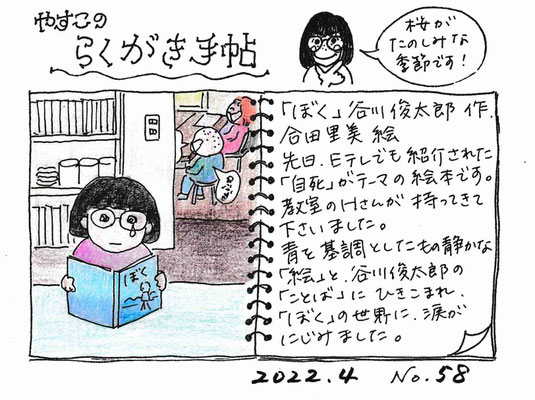 やすこの
らくがき手帖
桜が
たのしみな
季節です!
「ぼく」谷川俊太郎 作.
合田里美 絵
先日、日テレでも紹介された
「自死」がテーマの絵本です。
教室のHさんが持ってきて
下さいました。
青を基調としたもの静かな
「絵」と、谷川俊太郎の
「ことば」にひきこまれ、
「ぼく」の世界に、涙が
にじみました。
ぼく
2022.4 No.58